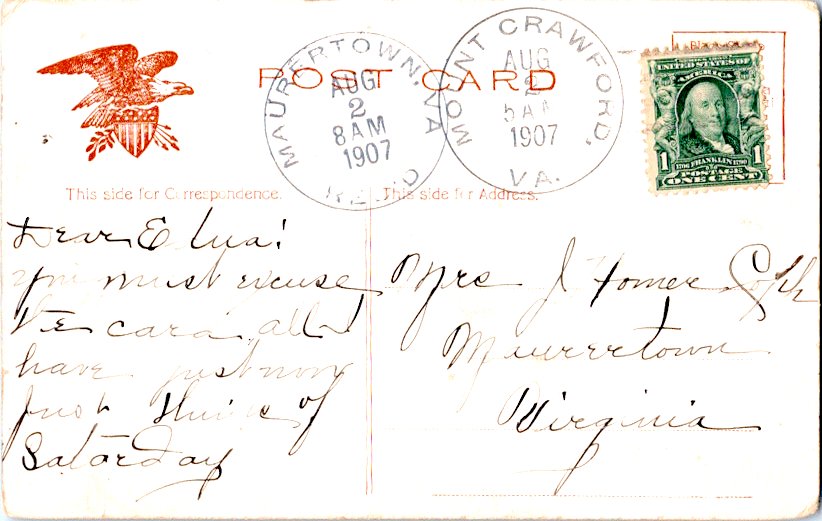 POST CARD
MAURERTOWN, VA
AUG
2
8 AM
1907
REC'D
MOUNT CRAWFORD,
AUG
2
5 AM
1907
VA.
UNITED STATES OF
AMERICA
1 1
FRANKLIN
POSTAGE
ONE CENT
This side for Correspondence.
This side for Address.
Dear
you must excuse
the card all I
have just now
Just think of
Saterday
Mrs J Homer
Maurertown
Virginia